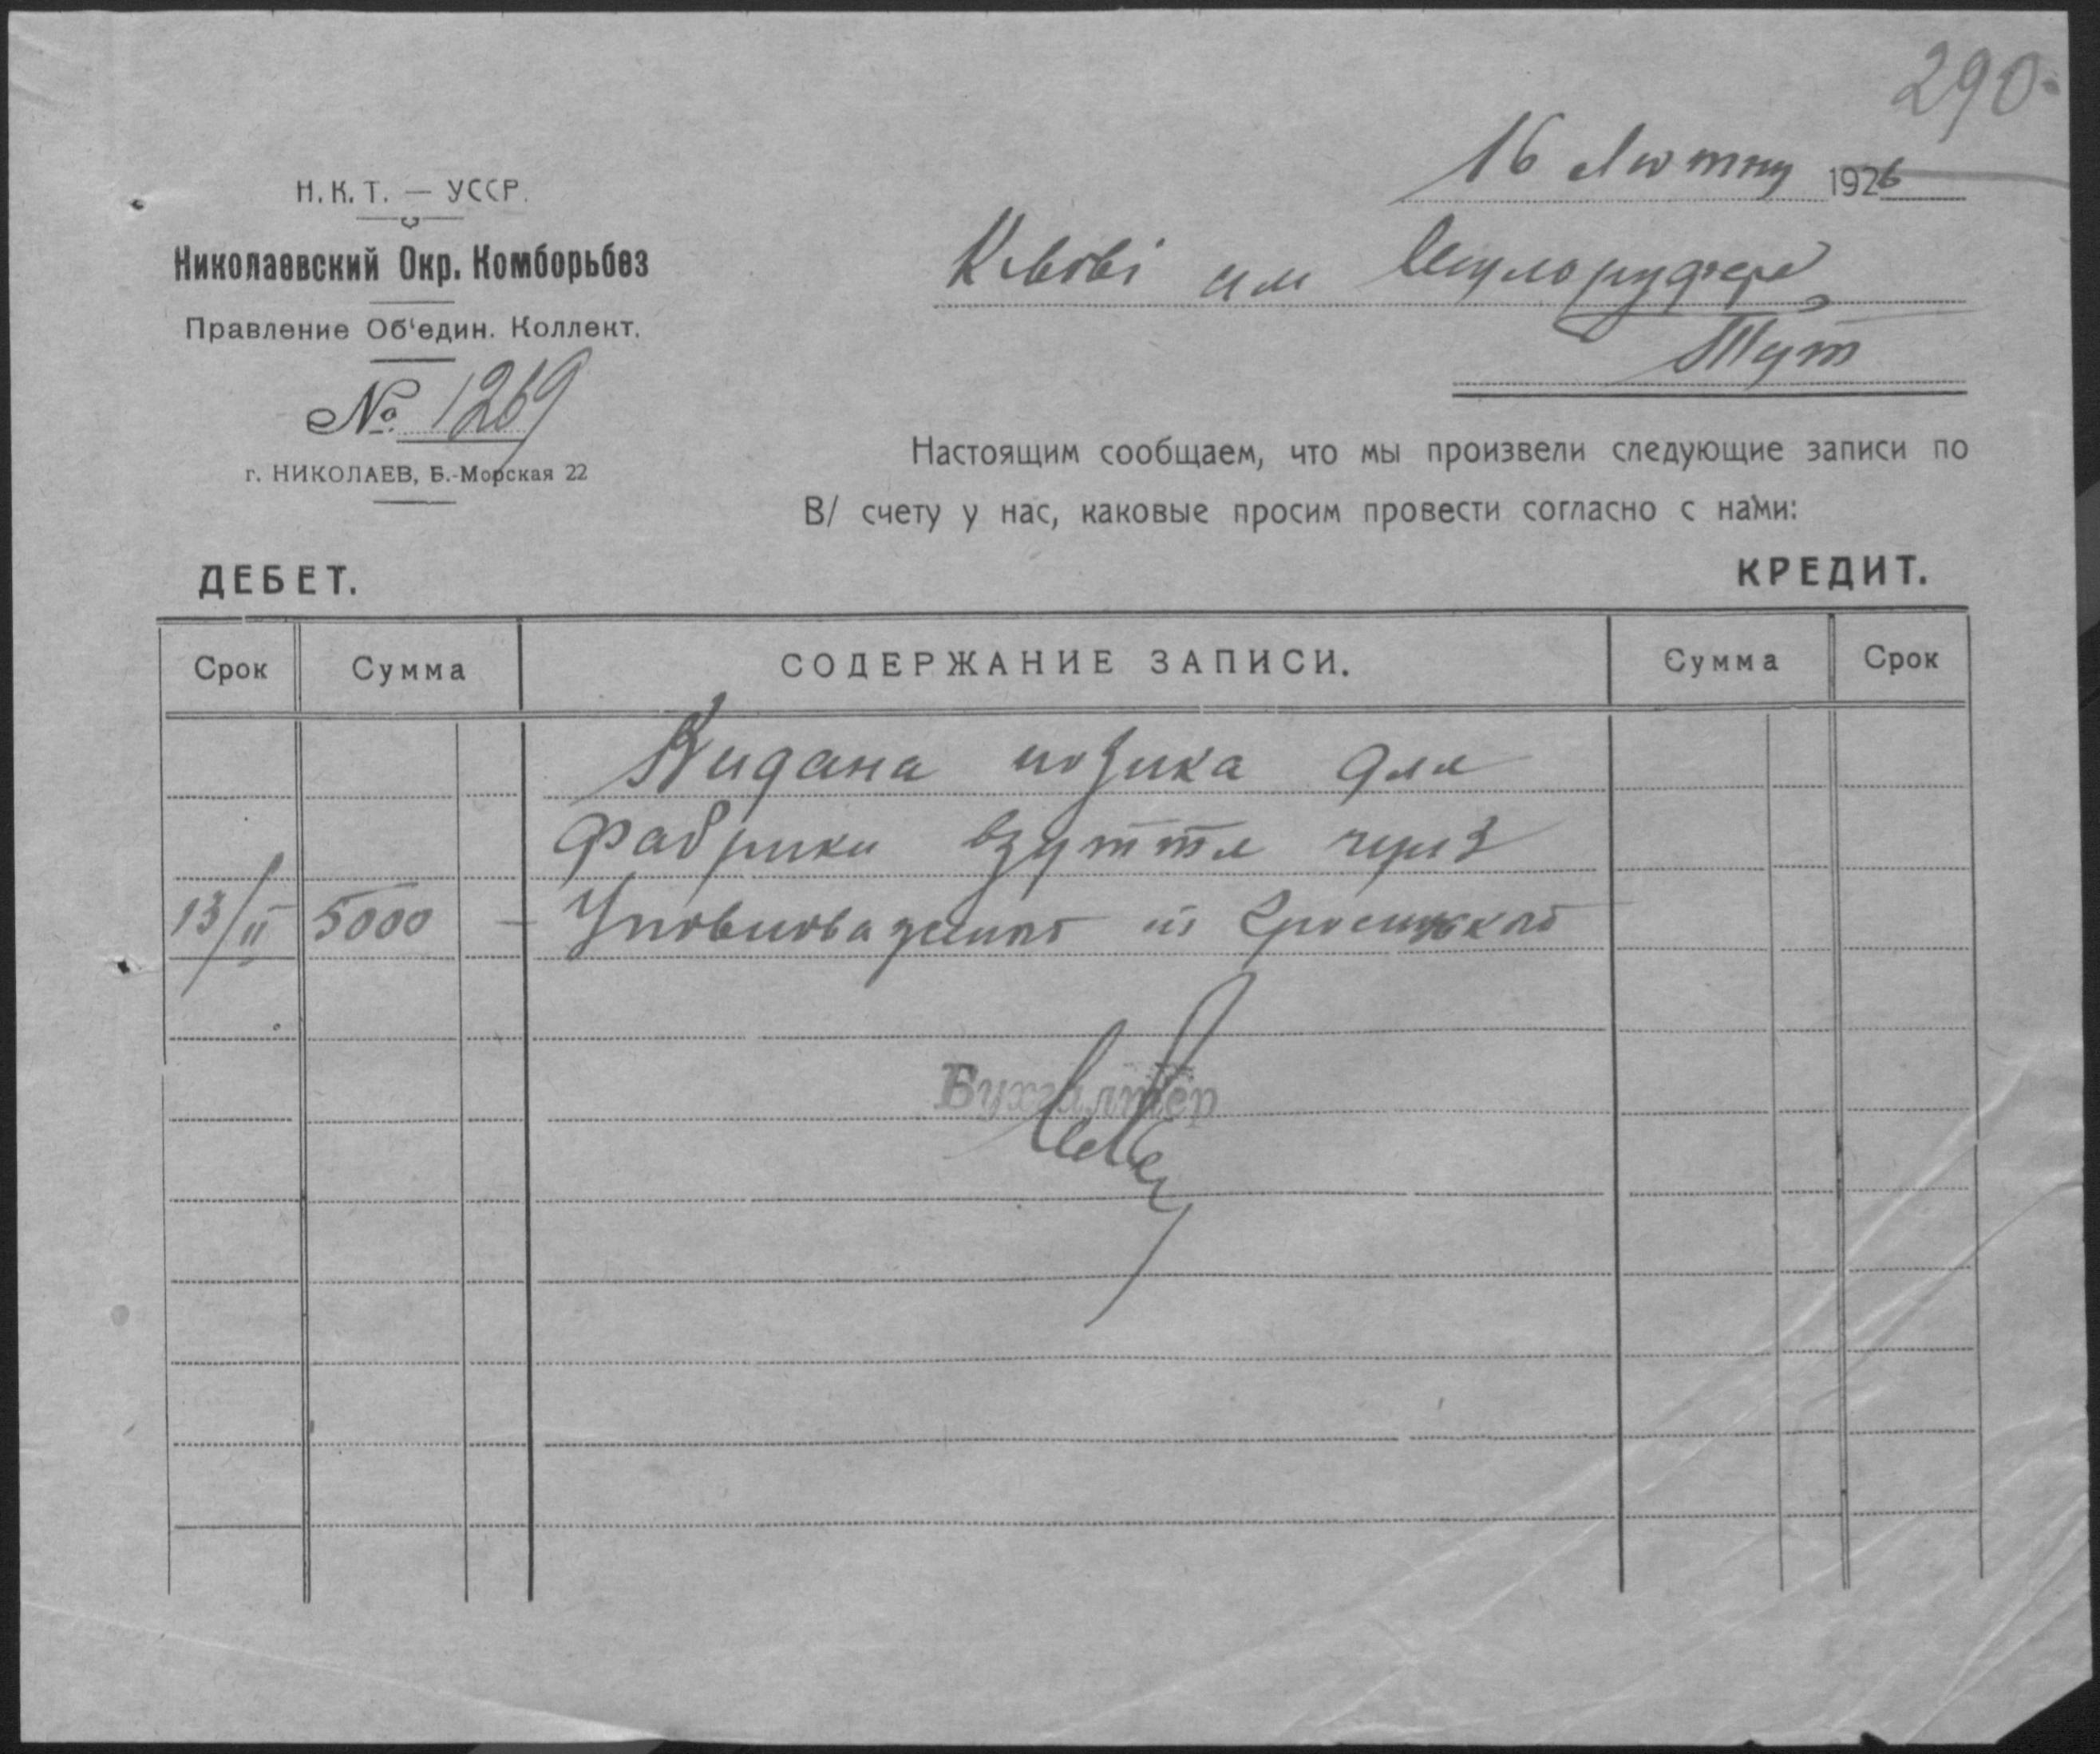 290
16 Лютня 1926
Н.К.Т. — УССР.
Николаевский Окр. Комборьбез
Правление Об'един. Коллект.
№ 1269
г. НИКОЛАЕВ, Б.-Морская 22
К-вові им
Тут
Настоящим сообщаем, что мы произвели следующие записи по
В/ счету у нас, каковые просим провести согласно с нами:
ДЕБЕТ. КРЕДИТ.
Срок Сумма СОДЕРЖАНИЕ ЗАПИСИ. Сумма Срок
Видана позика для
Фабрики взуття через
13/II 5000 — Уповноваженого
Бухгалтер